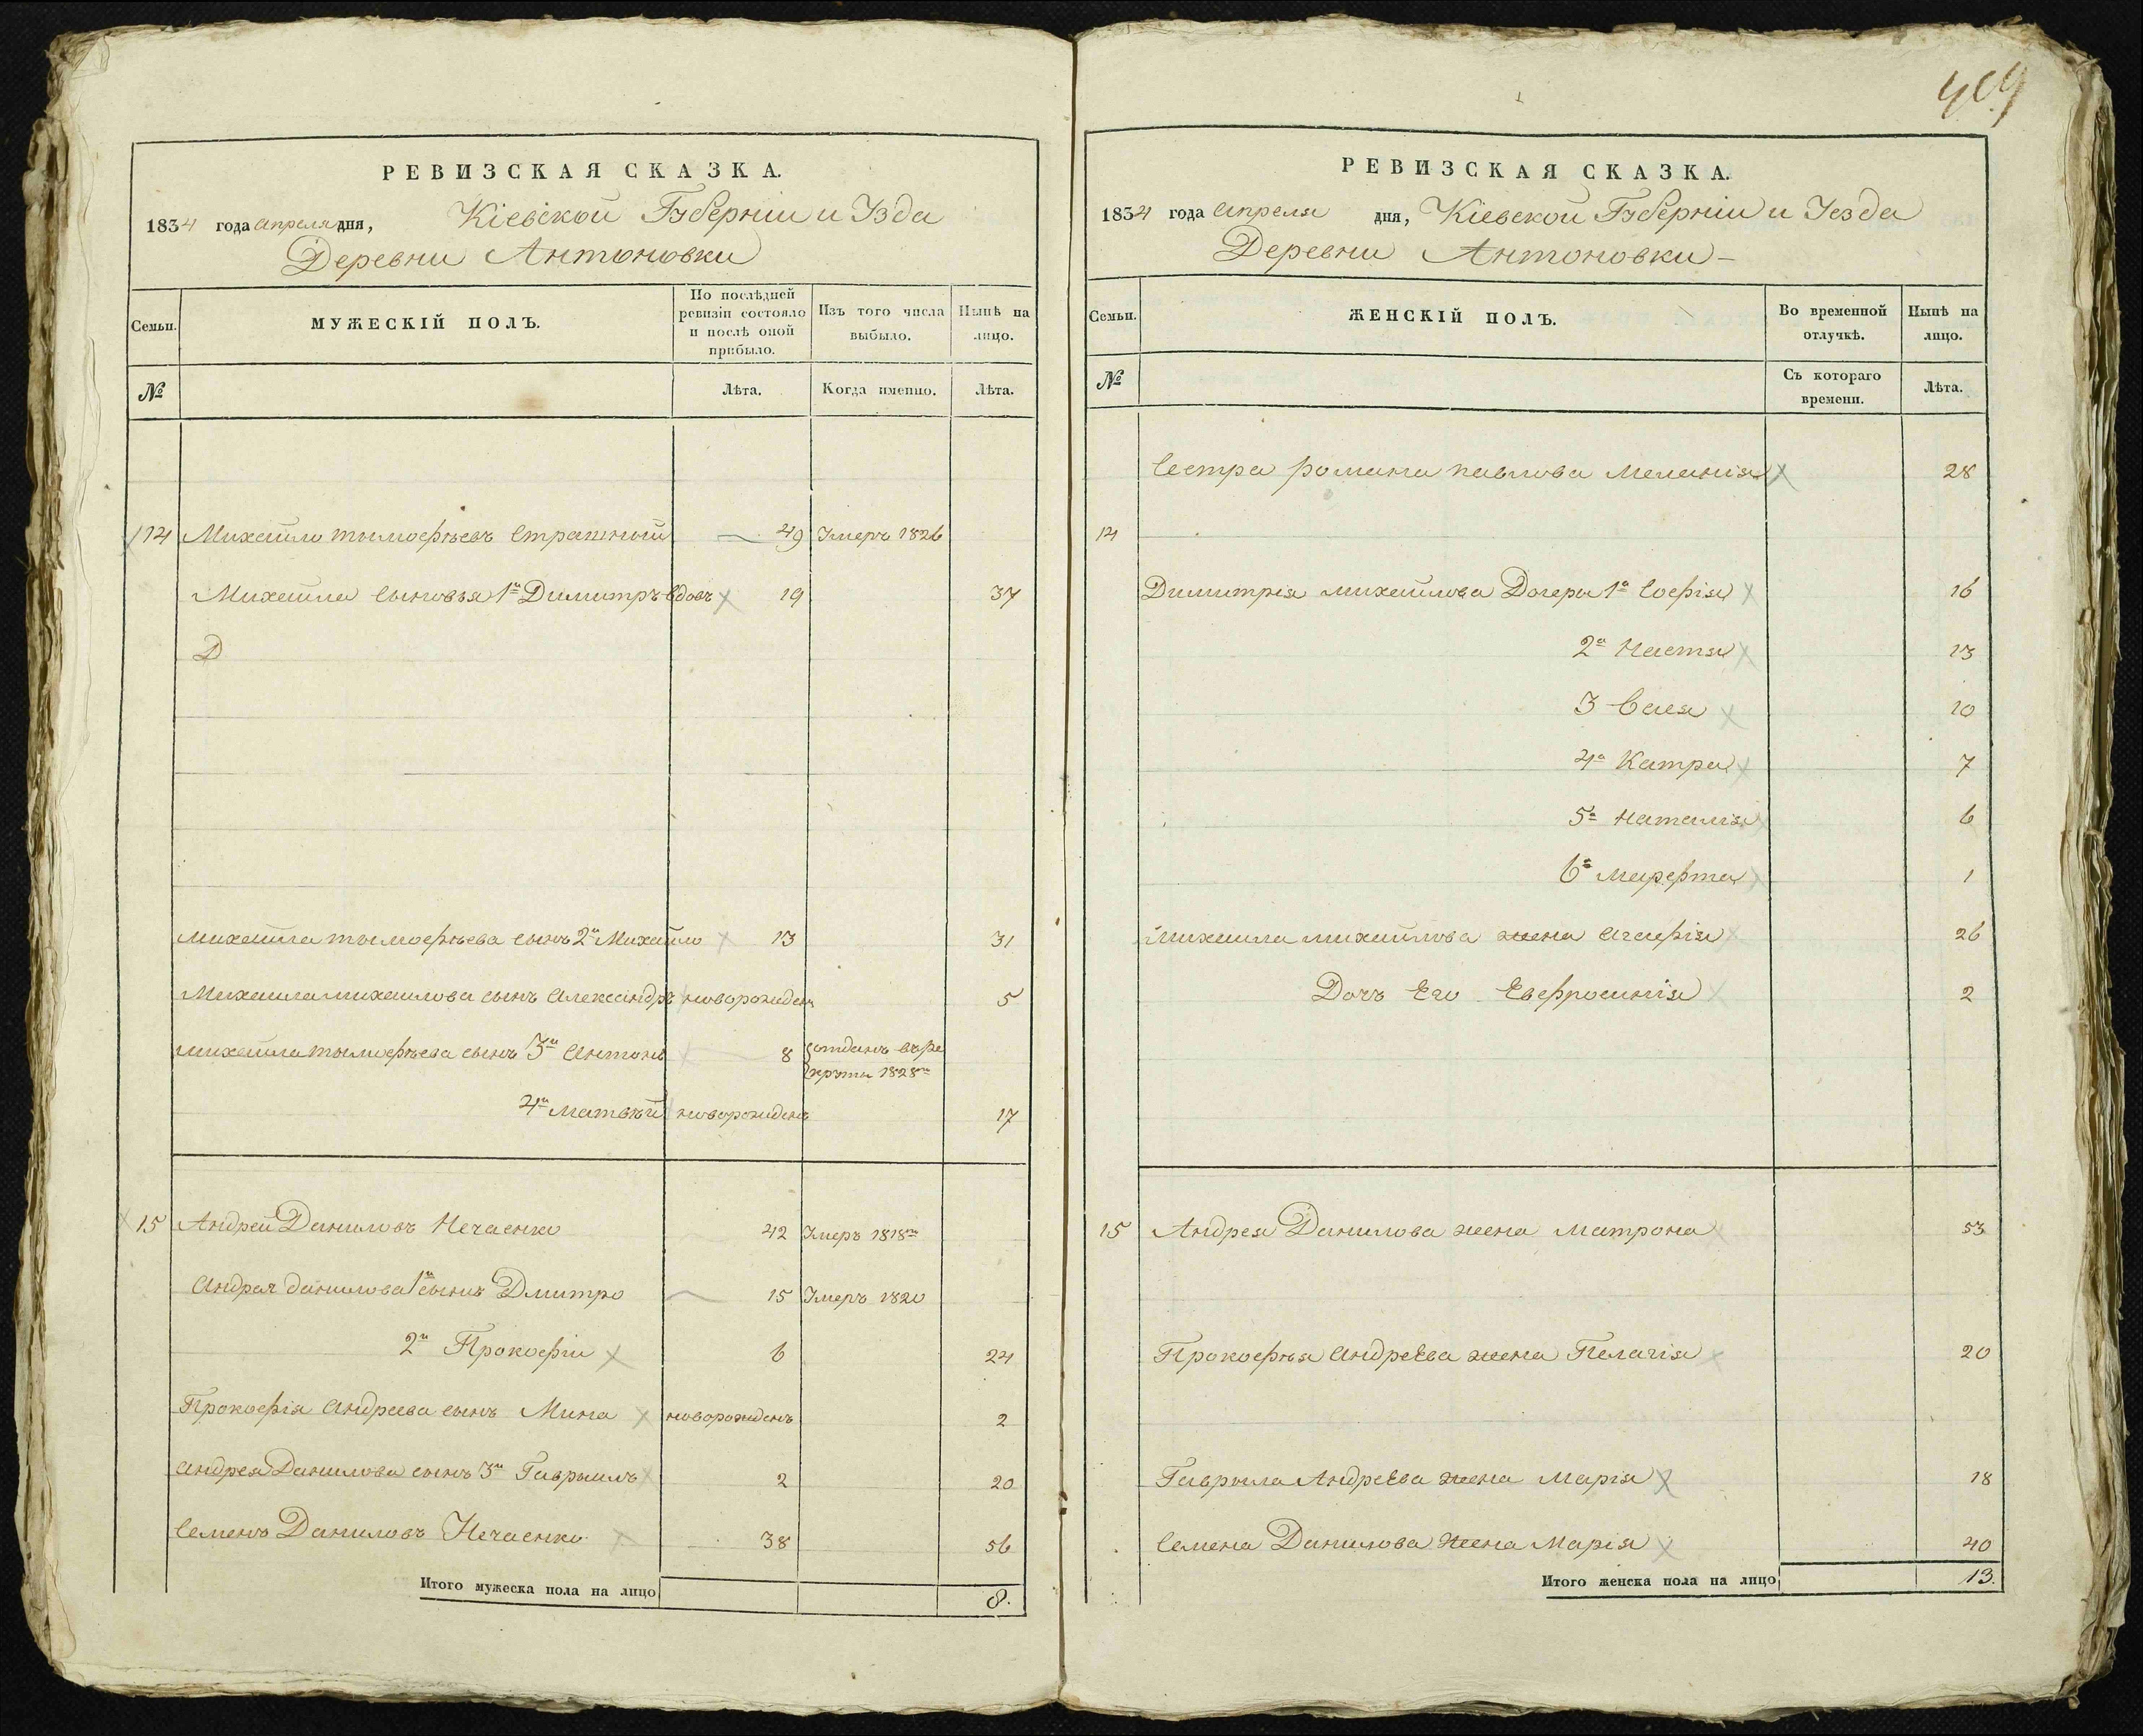 409
РЕВИЗСКАЯ СКАЗКА.
1834 года апреля дня, Кіевской Губерніи и Уѣзда
Деревни Антоновки
Семьи.
МУЖЕСКІЙ ПОЛЪ.
По послѣдней ревизіи состояло и послѣ оной прибыло.
Изъ того числа выбыло.
Нынѣ на лицо.
№
Лѣта.
Когда именно.
Лѣта.
14 Михайло тимофѣевъ Стражный 49 Умеръ 1826
Михайла сыновья 1й Димитръ вдовъ 19 37
Д
михайла тимофѣева сынъ 2й Михайло 13 31
Михаила михаилова сынъ александръ новорожденъ 5
михайла тимофѣева сынъ 3й Антонъ 8 отданъ въ ре
круты 1828го
4й Матвѣй новорожденъ 17
15 Андрей Даниловъ Нечаенко 42 Умеръ 1818го
Андрея данилова 1й сынъ Дмитро 15 Умеръ 1820
2й Прокофій 6 24
Прокофія Андреева сынъ Мина новорожденъ 2
андрея Данилова сынъ 3й Гаврыилъ 2 20
Семенъ Даниловъ Нечаенко 38 56
Итого мужеска пола на лицо 8.
РЕВИЗСКАЯ СКАЗКА.
1834 года Апреля дня, Кіевской Губерніи и Уезда
Деревни Антоновки
Семьи.
ЖЕНСКІЙ ПОЛЪ.
Во временной отлучкѣ.
Нынѣ на лицо.
№
Съ котораго времени.
Лѣта.
Сестра романа павлова Меланія 28
14
Димитрія михайлова Дочери 1я Софія 16
2я Настя 13
3 Васса 10
4я Катра 7
5я Наталія 6
6я Марфта 1
михаила михайлова жена агафія 26
Дочъ Его Евфросинія 2
15 Андрея Данилова жена Матрона 53
Прокофья андреева жена Пелагія 20
Гаврыла Андреева жена Марія 18
Семена Данилова жена Марія 40
Итого женска пола на лицо 13.